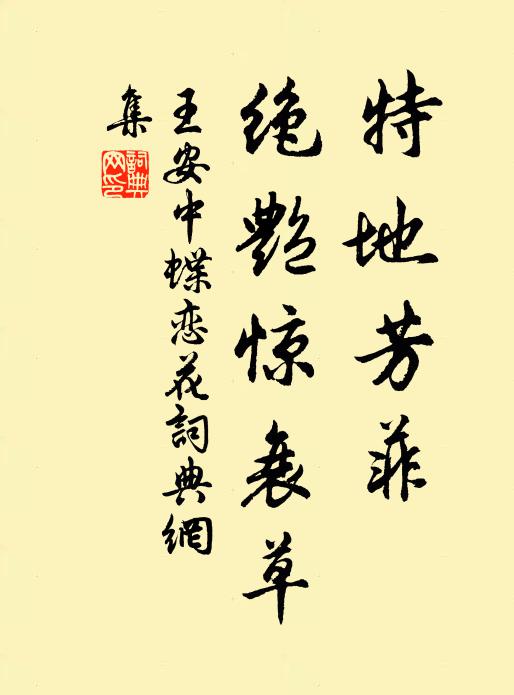 特地芳菲
绝艳惊衰草
王安中蝶恋花詞典網
集
詞典
网印